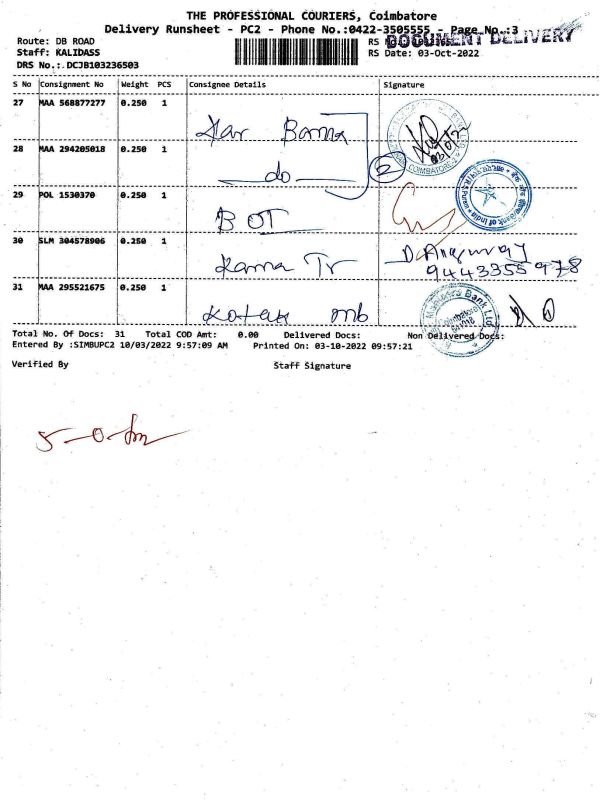 THE PROFESSIONAL COURIERS, Coimbatore
Delivery Runsheet - PC2 - Phone No.:0422-3505555 - Page No.:3
DOCUMENT DELIVERY
Route: DB ROAD
RS
Staff: KALIDASS
RS Date: 03-Oct-2022
DRS No.:.DCJB103236503
S No Consignment No Weight PCS Consignee Details Signature
27 MAA 568877277 0.250 1
28 MAA 294205018 0.250 1 do 2
COIMBATORE
29 POL 1530370 0.250 1 BOI
Bank of India
30 SLM 304578906 0.250 1
9443355978
31 MAA 295521675 0.250 1 Kotak mb
Mahindra Bank Ltd
Total No. Of Docs: 31 Total COD Amt: 0.00 Delivered Docs: Non Delivered Docs:
Entered By :SIMBUPC2 10/03/2022 9:57:09 AM Printed On: 03-10-2022 09:57:21
Verified By Staff Signature